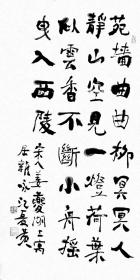 苑墙曲曲柳冥冥人
静山空見一燈荷葉
似雲香不斷小舟摇
曳入西陵
宋人姜夔湖上寓
居雜咏